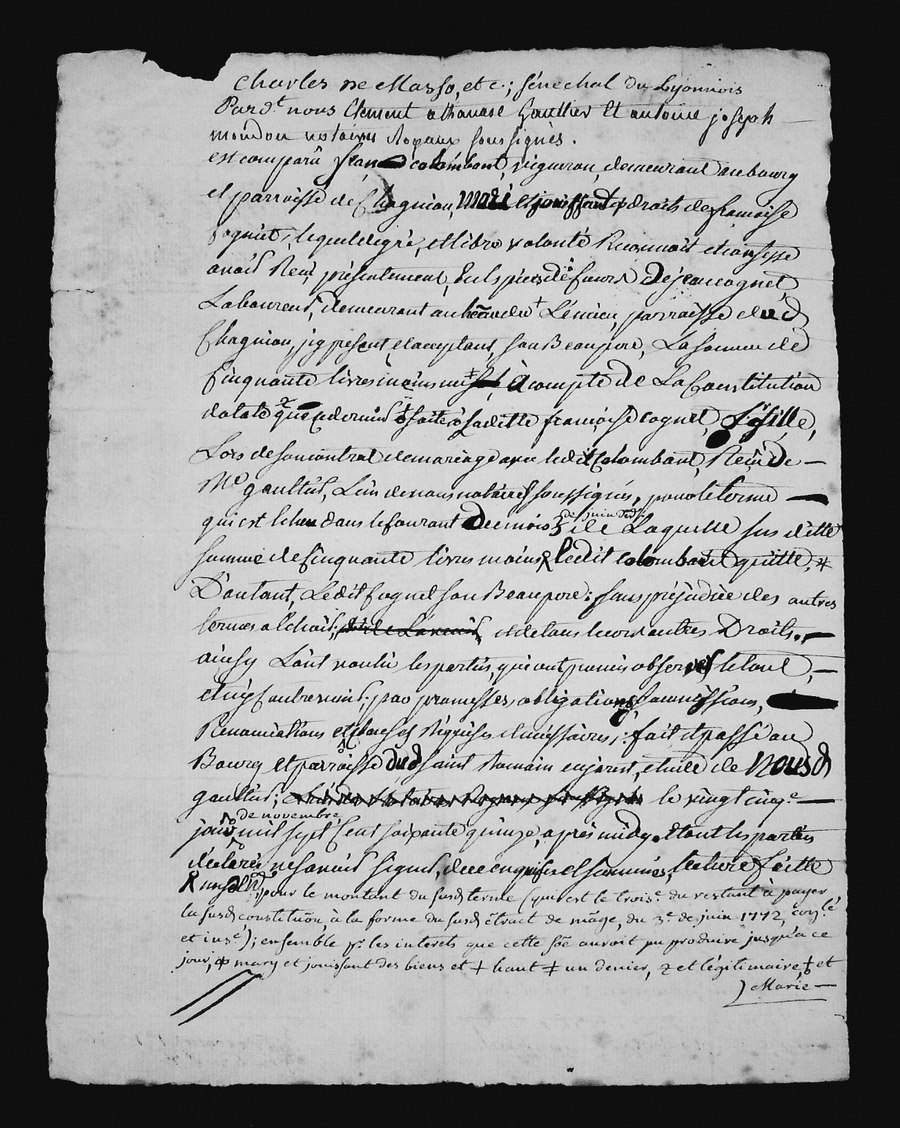 Charles De Masso, etc; sénéchal du Lyonnois
Pard.t nous Clement athanase Gaultier Et antoine joseph
mondon notaires Royaux soussignés.
est comparû fran colombant, vigneron, demeurant au bourg
et parroisse de Chagnion, Mari et jouissant droits de françoise
cognet, lequel de gré, et libre volonté Reconnoit et confesse
avoir Reçu présentement, de jean cognet
Laboureur, demeurant au parroisse dud
Chagnion, icy présent, et acceptant, son Beaupere, La somme de
Cinquante livres moins à compte de La Constitution
dotale faite à Laditte françoise cognet, sa fille,
Lors de son contrat de mariage avec ledit Colombant, Reçu de
Me gaultier, L'un de nous notaires soussignés, pour le terme
qui est échu dans le courant Du mois de juin de Laquelle sus ditte
somme de Cinquante livres moins Ledit colombant quitte,
D'autant, Ledit Cognet son Beaupere; sans préjudice des autres
termes à échoir; et de tous leurs autres Droits.
ainsy L'ont voulu les parties, qui ont promis observer le tout,
par promesses, obligations, soumissions,
Renonciations et clauses Requises et necessaires; fait et passé au
Bourg et parroisse dud saint Romain en jarest, etude de Nousd
gaultier; le vingt cinq.e
de novembre
jour mil sept Cent soixante quinze, après midy. Et ont les parties
déclaré ne savoir signer, de ce enquises et sommées, lecture faitte
pour le montant du susd terme (qui est le trois.e du restant à payer
la susd constitution, à la forme du susd contract de mage, du 3.e de juin 1772, con.lé
et ins.é); ensemble pr. les interets que cette soe auroit pu produire jusqu'a ce
jour, ⌽ mary et jouissant des biens et ‡ haut ‡ un denier, 2 et légitimaire, ‡ et
Marie